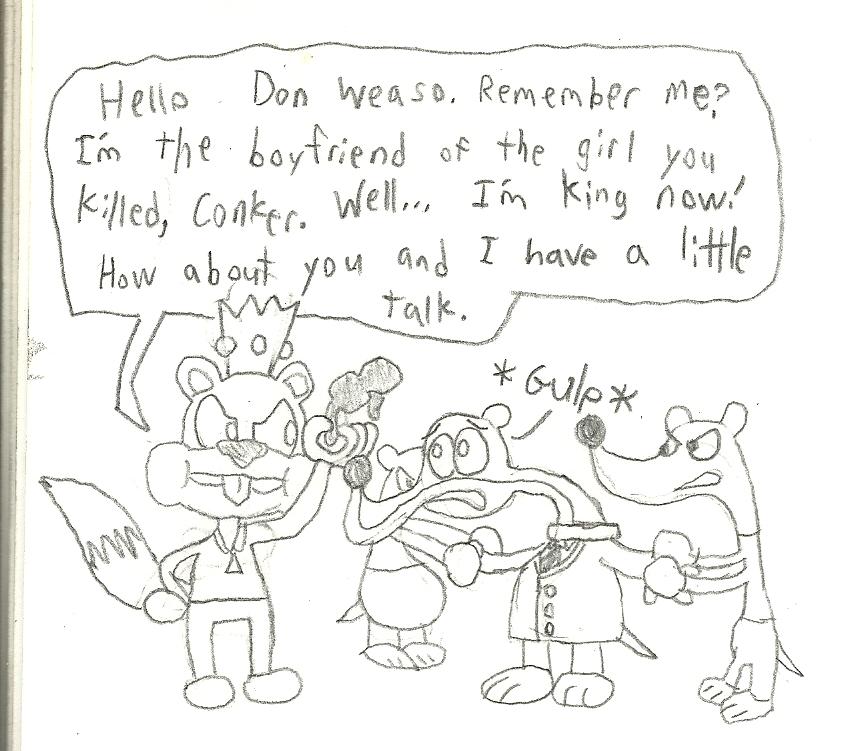 Hello Don Weaso. Remember me?
I'm the boyfriend of the girl you
killed, Conker. Well... I'm king now!
How about you and I have a little
talk.
*Gulp*